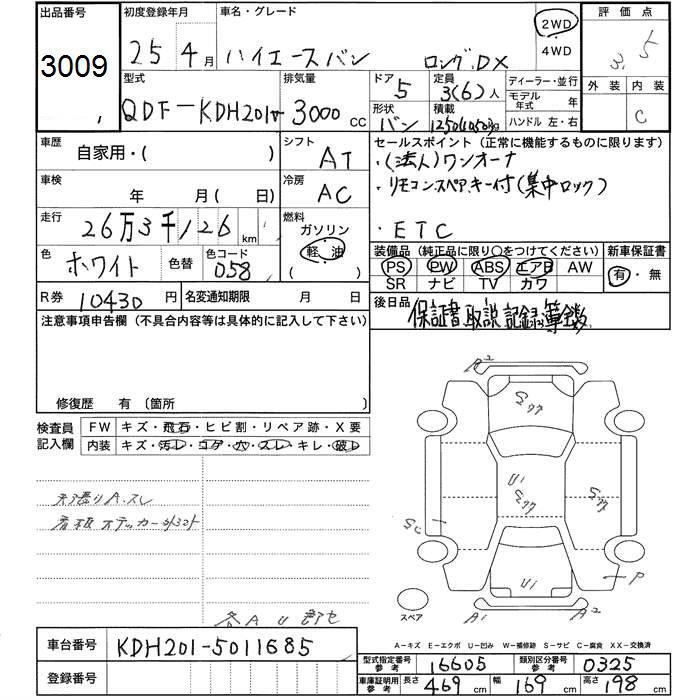 出品番号 初度登録年月 車名・グレード 2WD 4WD 評価点
3009 25年4月 ハイエースバン ロングDX 3.5
外装 内装
C
型式 排気量 ドア 定員 ディーラー・並行
QDF-KDH201V 3000 cc 5 3(6)人 モデル年式 年
形状 積載 ハンドル 左・右
バン 1250(1050)kg
車歴 自家用・( ) シフト AT
セールスポイント(正常に機能するものに限ります)
・(法人)ワンオーナ
・リモコンスペアキー付(集中ロック)
・ETC
車検 年 月(日) 冷房 AC
走行 26万3千126km 燃料 ガソリン 軽油 ( )
色 ホワイト 色替 色コード 058
装備品(純正品に限り○をつけてください) 新車保証書
PS PW ABS エアB AW 有・無
SR ナビ TV カワ
R券 10430円 名変通知期限 月 日
後日品 保証書 取説 記録簿
注意事項申告欄(不具合内容等は具体的に記入して下さい)
修復歴 有 〔箇所 〕
検査員記入欄 FW キズ・飛石・ヒビ割・リペア跡・X要
内装 キズ・汚レ・コゲ・穴・スレ・キレ・破レ
A2
U1
U1
P
スペア A1 A2
A-キズ E-エクボ U-凹み W-補修跡 S-サビ C-腐食 XX-交換済
車台番号 KDH201-5011685
登録番号
型式指定番号 参考 16605 類別区分番号 参考 0325
車庫証明用 参考 長さ 469cm 幅 169cm 高さ 198cm